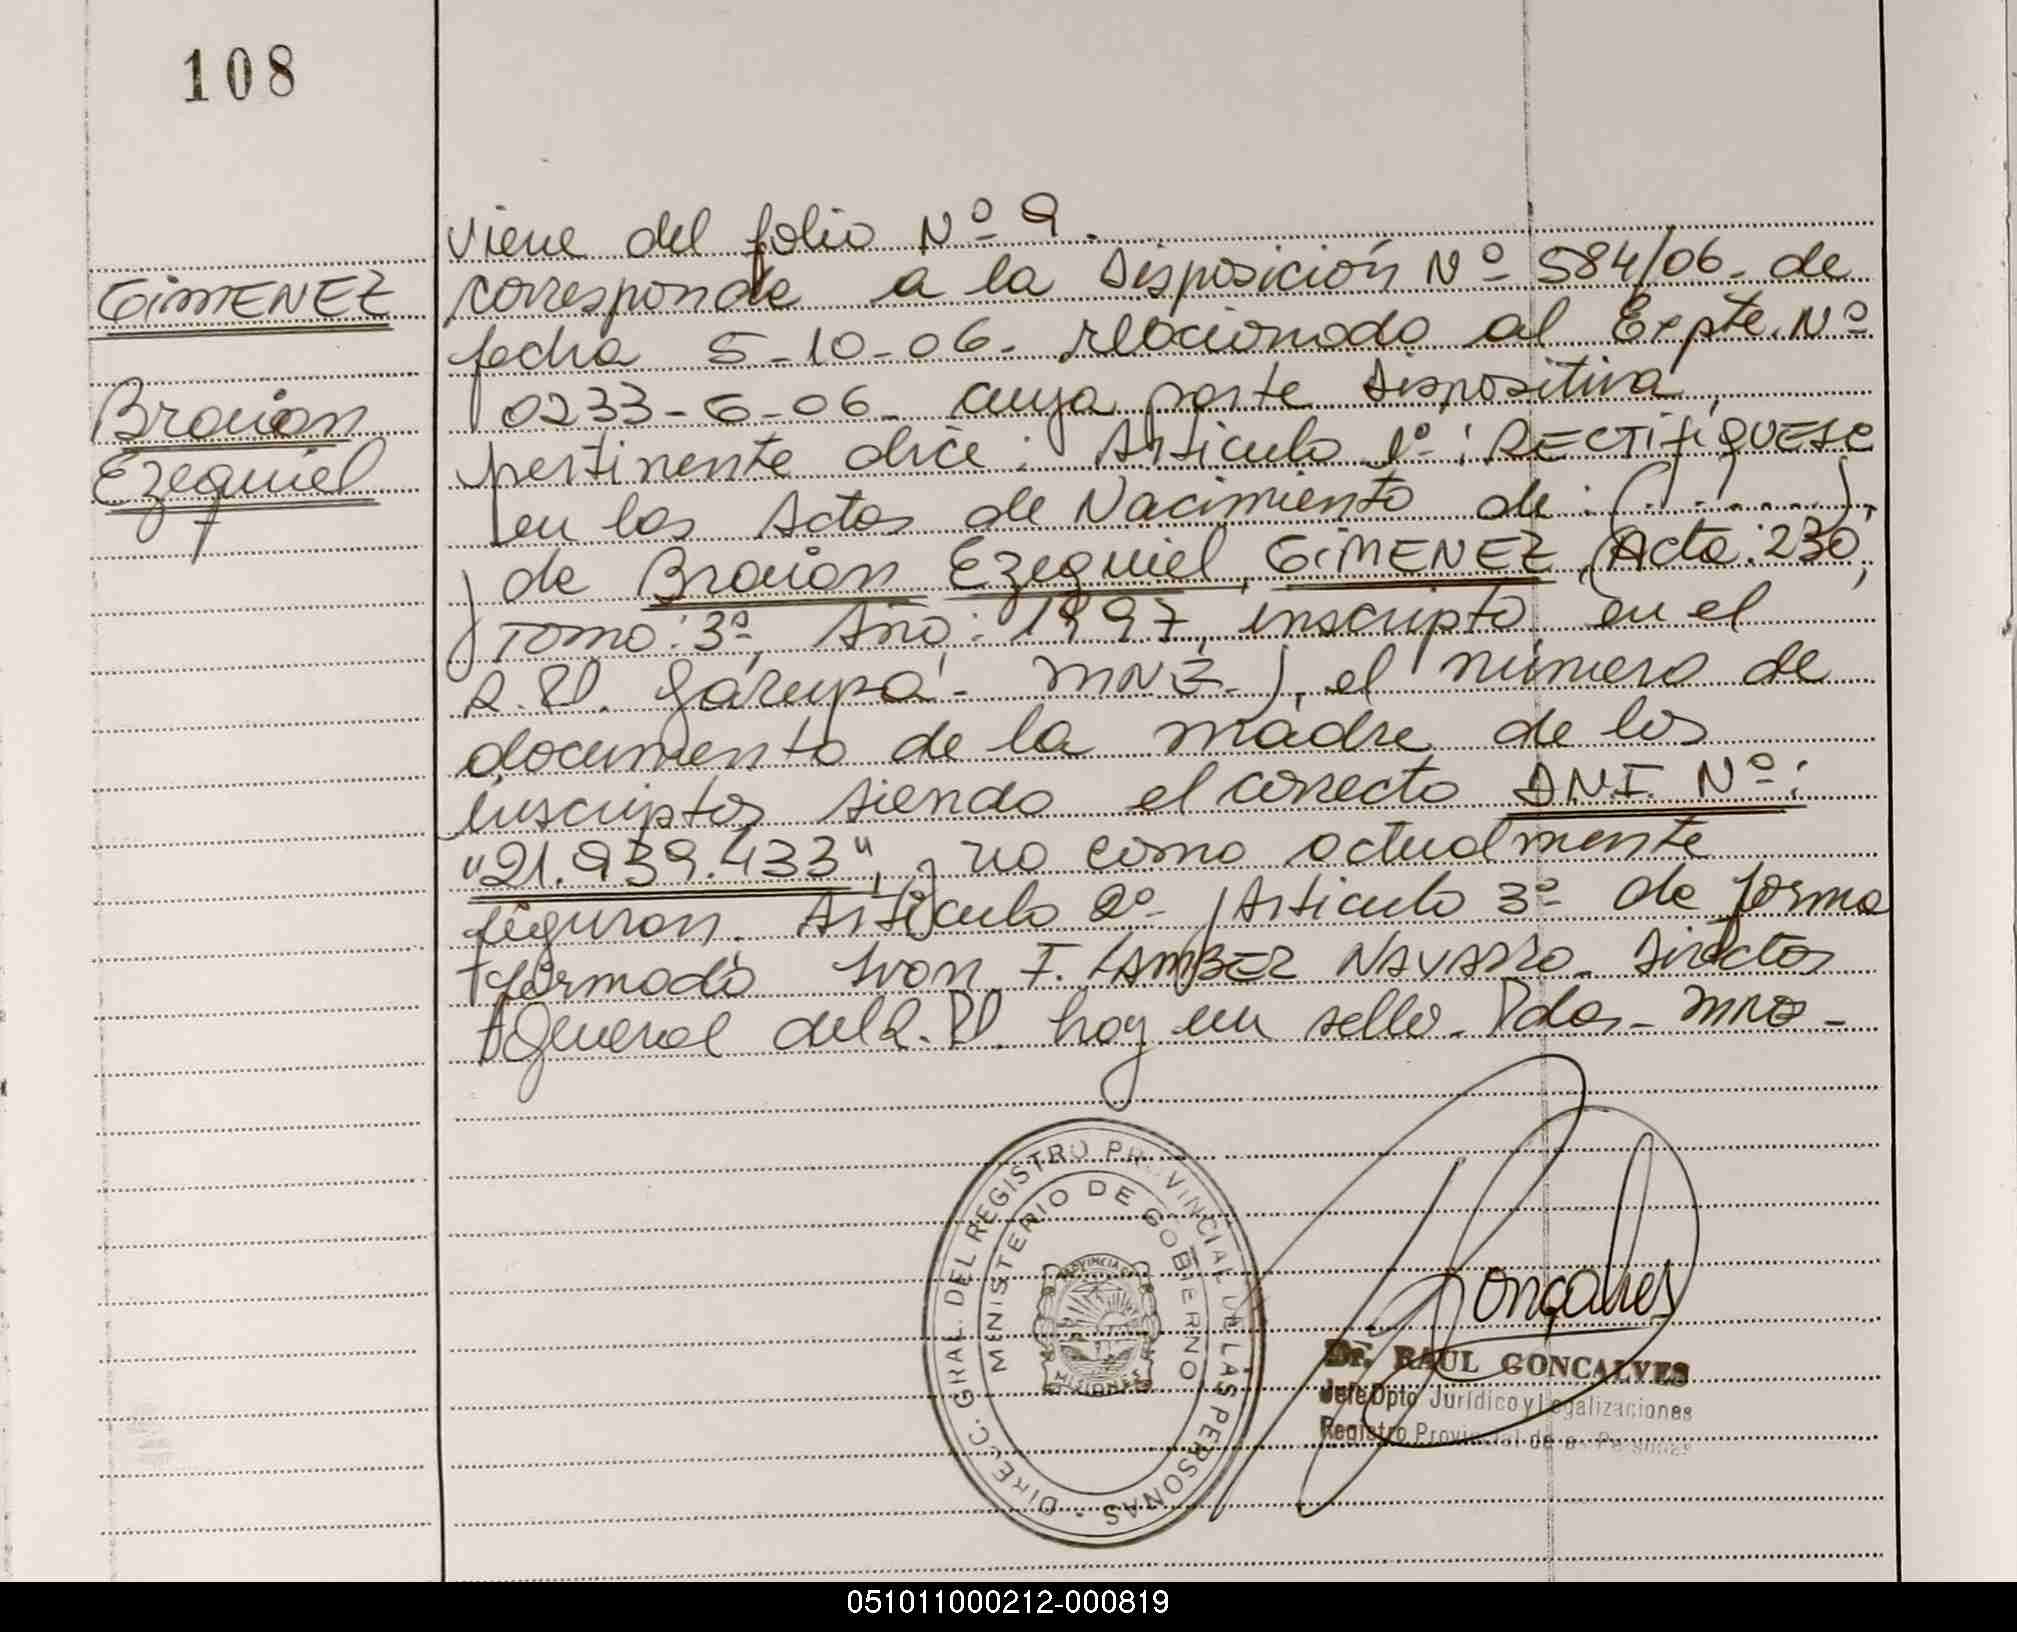 108
GIMENEZ
Braian
Ezequiel
viene del folio Nº 9.
corresponde a la Disposición Nº 584/06. de
fecha 5-10-06. relacionado al Expte. Nº
0233-G-06. cuya parte dispositiva
pertinente dice: Articulo 1º: RECTIFIQUESE
en las Actas de Nacimiento de: (.......),
de Braian Ezequiel, GIMENEZ, (Acta: 230,
Tomo: 3º, Año: 1997, inscripto en el
R.P. Garupá - MNES.), el número de
documento de la madre de los
inscriptos siendo el correcto D.N.I. Nº:
"21.939.433", y no como actualmente
figuran. Articulo 2º. Articulo 3º de forma
firmado Ivon I. LAMBER NAVARRO. Director
General del R.P. hay un sello. Pdas. Mnes -
DIREC. GRAL. DEL REGISTRO PROVINCIAL DE LAS PERSONAS
MENISTERIO DE GOBIERNO
PROVINCIA
MISIONES
Goncalves
Dr. RAUL GONCALVES
Jefe Dpto Jurídico y Legalizaciones
Registro Provincial de las Personas
051011000212-000819